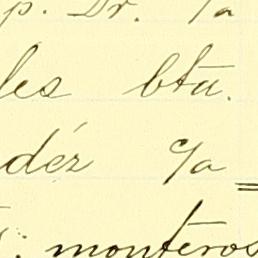 p. Dr. %a
les bta.
déz %a
: monteros